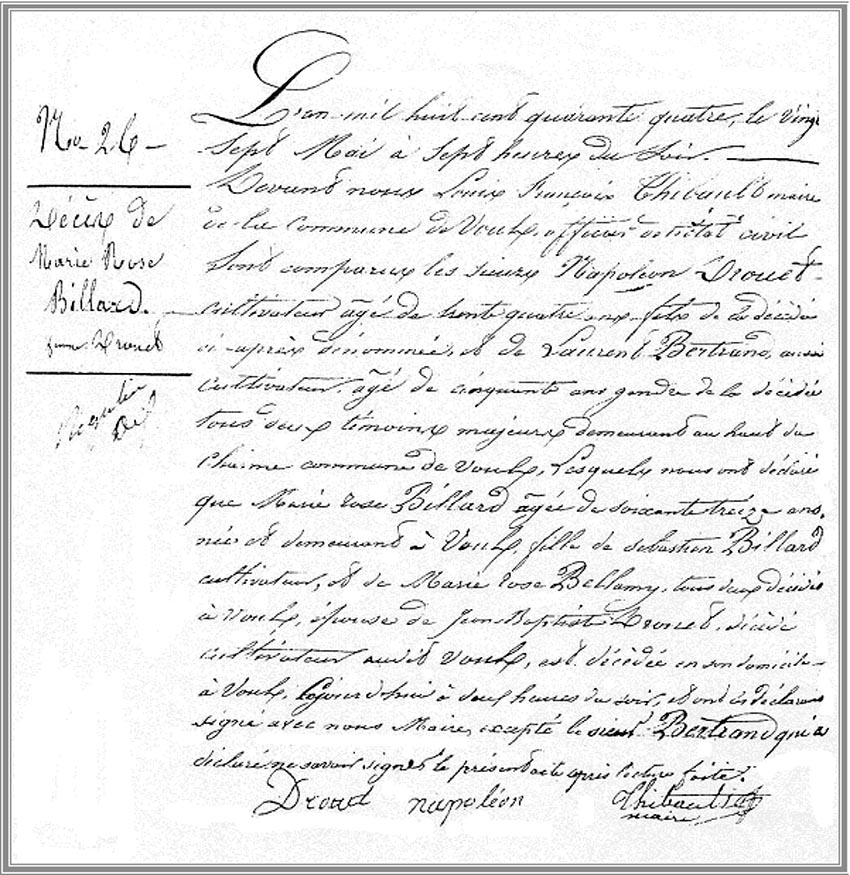 No 26 -
Décès de
Marie Rose
Billard.
femme Drouet
L'an mil huit cent quarante quatre, le vingt
Sept Mai à Sept heures du Soir.
Devant nous Louis François Thibault maire
de la Commune de Voulx, officier de l'état civil
Sont comparus les sieurs Napoléon Drouet
cultivateur âgé de trente quatre ans fils de la décédée
ci-après dénommée, et de Laurent Bertrand, aussi
cultivateur, âgé de cinquante ans gendre de la décédée
tous deux témoins majeurs demeurant au haut du
Charme commune de Voulx, Lesquels nous ont déclaré
que Marie rose Billard âgée de soixante treize ans,
née et demeurant à Voulx fille de sebastien Billard
cultivateur, et de Marie rose Bellamy, tous deux décédés
à Voulx, épouse de Jean Baptiste Drouet, décédé
cultivateur audit Voulx, est décédée en son domicile
à Voulx, aujourd'hui à deux heures du soir, et ont les déclarans
signé avec nous Maire, excepté le sieur Bertrand qui a
déclaré ne savoir signer le présent acte après lecture faite.
Drouet napoléon
Thibault
maire